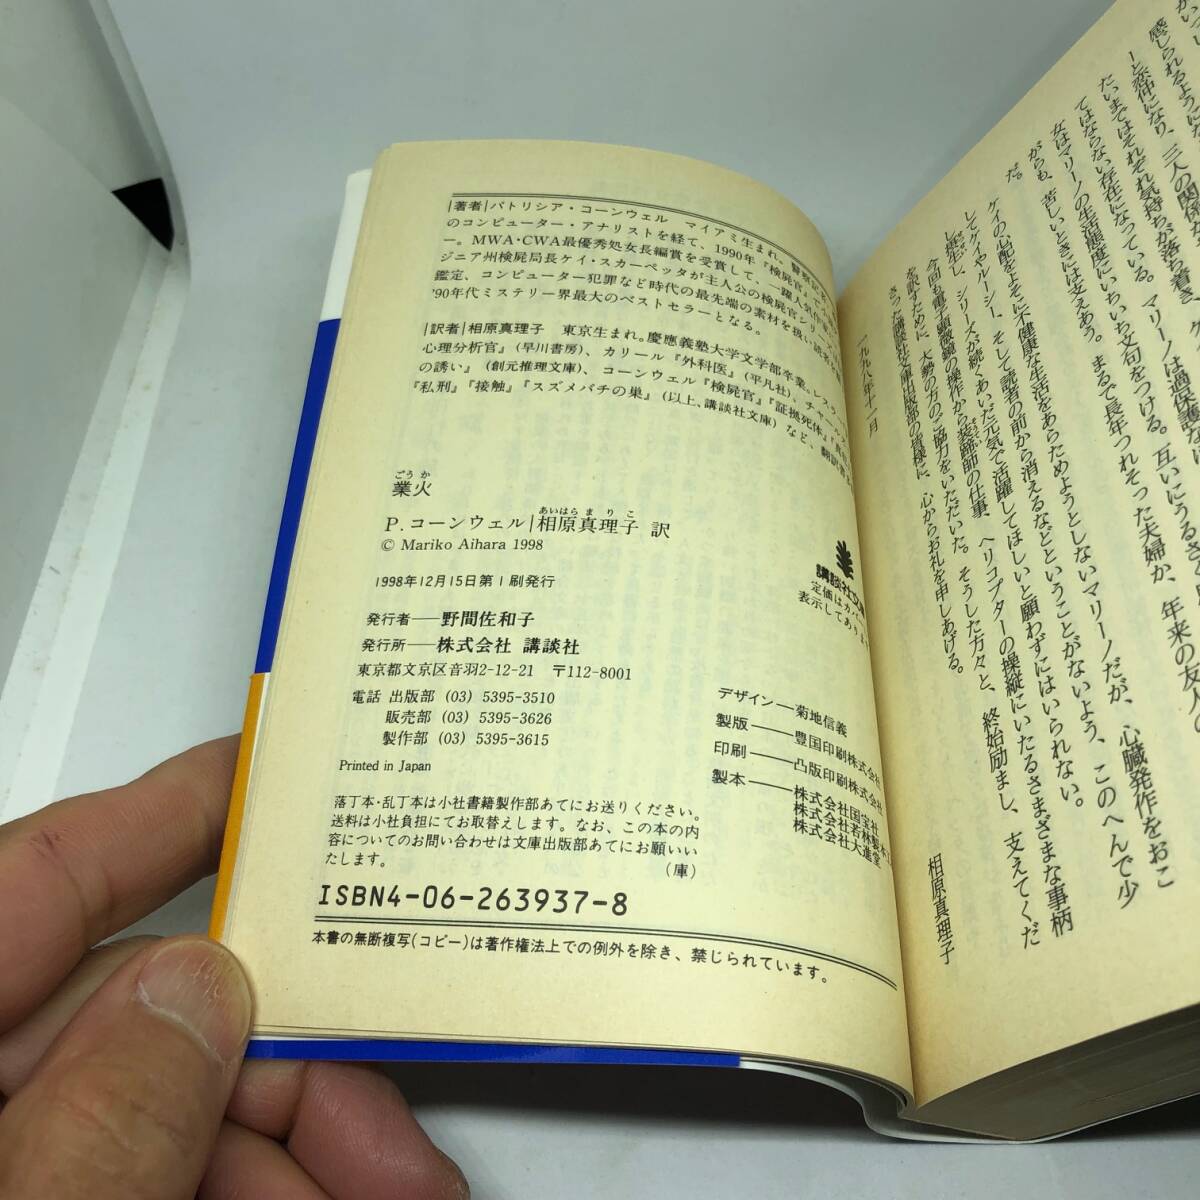 感じられるように
ーと恋仲になり、三人の関係
たいまではそれぞれ気持ちが落ち着き
てはならない存在になっている。マリーノは過保護な
女はマリーノの生活態度にいちいち文句をつける。互いにうるさく
がらも、苦しいときには支えあう。まるで長年つれそった夫婦か、年来の友人の
だ。
ケイの心配をよそに不健康な生活をあらためようとしないマリーノだが、心臓発作をおこ
してケイやルーシー、そして読者の前から消えるなどということがないよう、このへんで少
し摂生し、シリーズが続くあいだ元気で活躍してほしいと願わずにはいられない。
今回も電子顕微鏡の操作から装蹄師の仕事、ヘリコプターの操縦にいたるさまざまな事柄
を訳すために、大勢の方のご協力をいただいた。そうした方々と、終始励まし、支えてくだ
さった講談社文庫出版部の皆様に、心からお礼を申しあげる。
一九九八年十一月
相原真理子
|著者|パトリシア・コーンウェル マイアミ生まれ。警察記者
のコンピューター・アナリストを経て、1990年『検屍官』で
ー。MWA・CWA最優秀処女長編賞を受賞して、一躍人気作家に
ジニア州検屍局長ケイ・スカーペッタが主人公の検屍官シリーズ
鑑定、コンピューター犯罪など時代の最先端の素材を扱い読者を
'90年代ミステリー界最大のベストセラーとなる。
|訳者|相原真理子 東京生まれ。慶應義塾大学文学部卒業。レスラー
心理分析官』(早川書房)、カリール『外科医』(平凡社)、チャーチ
の誘い』(創元推理文庫)、コーンウェル『検屍官』『証拠死体』
『私刑』『接触』『スズメバチの巣』(以上、講談社文庫)など、翻訳書
ごうか
業火
あいはらまりこ
P.コーンウェル|相原真理子 訳
© Mariko Aihara 1998
1998年12月15日第1刷発行
発行者──野間佐和子
発行所──株式会社 講談社
東京都文京区音羽2-12-21 〒112-8001
電話 出版部 (03) 5395-3510
販売部 (03) 5395-3626
製作部 (03) 5395-3615
Printed in Japan
講談社文庫
定価はカバー
表示してあります
デザイン──菊地信義
製版──豊国印刷株式会社
印刷──凸版印刷株式会社
製本──株式会社国宝社
株式会社若林製本工
株式会社大進堂
落丁本・乱丁本は小社書籍製作部あてにお送りください。
送料は小社負担にてお取替えします。なお、この本の内
容についてのお問い合わせは文庫出版部あてにお願いい
たします。
(庫)
ISBN4-06-263937-8
本書の無断複写(コピー)は著作権法上での例外を除き、禁じられています。